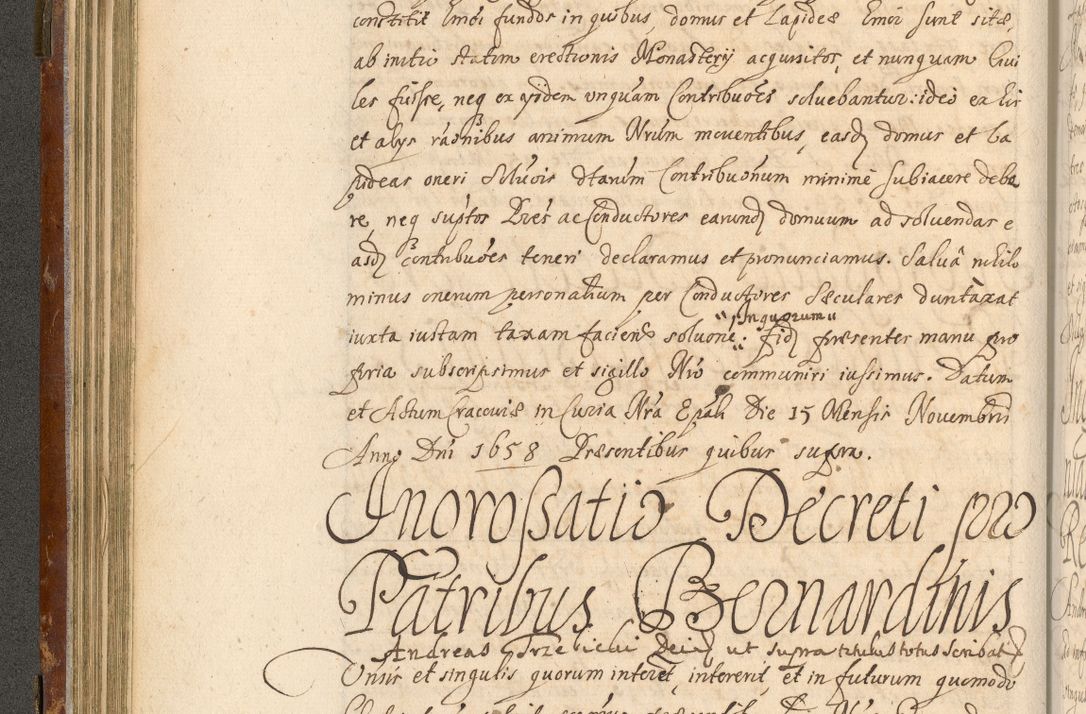 constitit Emõi fundos in quibus, domus et Lapideæ Emõi sunt sitæ,
ab initio statim erectionis Monasterij acquisitos, et nunquam Ciui
les fuisse, neq ex ijsdem vnquam Contribuoẽs soluebantur: ideo ex his
et alijs raõnibus animum Nrũm mouentibus, easd domus et La
pideas oneri dtarũm Contribuõnum minimè subiacere debe
re, neq suptos Pres ac Conductores earund domuum ad soluendas e
asd contribuoẽs teneri declaramus et pronunciamus. Saluâ nihilo
minus onerum personalium per Conductores Sæculares duntaxat
iuxta iustam taxam faciend soluone. In quorum fid præsentes manu pro
pria subscripsimus et sigillo Nro communiri iussimus. Datum
et Actum Cracouiæ in Curia Nra Epali Die 15 Mensis Novembris
Anno Dni 1658 Præsentibus quibus supra.
Ingrossatio Decreti pro
Patribus Bernardinis
Andreas Trzebicki Dei ut supra titulus totus scribat
Vnsis et singulis quorum interet, intererit, et in futurum quomodo